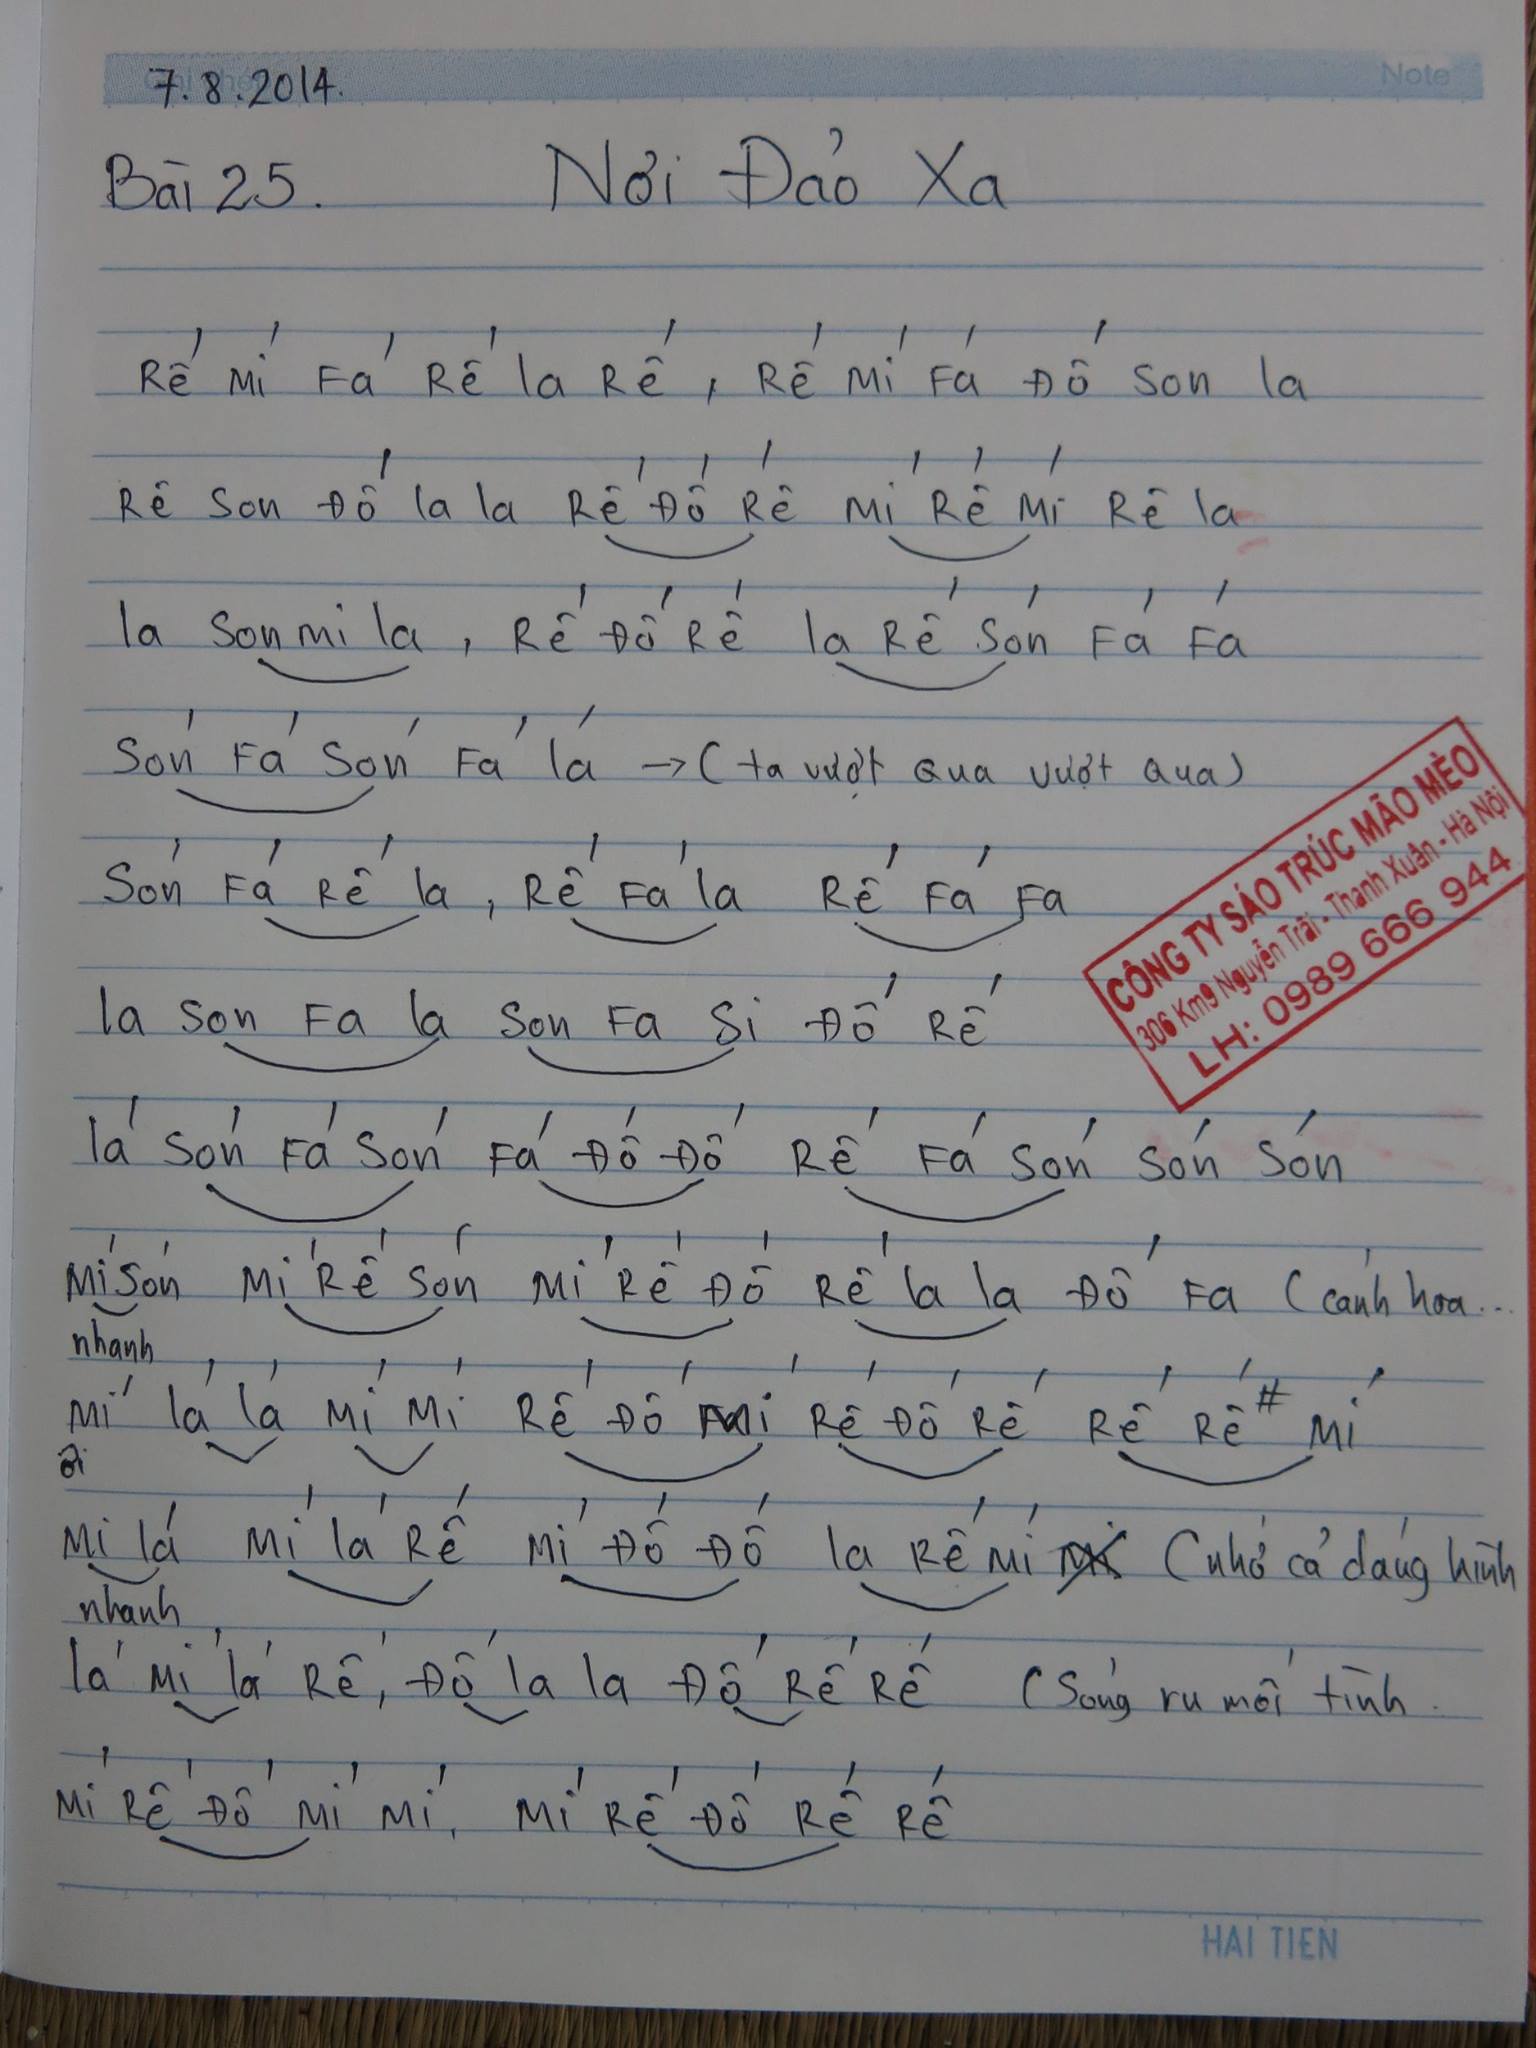 Ghi chép
Note
7.8.2014.
Bài 25. Nơi Đảo Xa
Rế Mí Fá Rế la Rế, Rế Mí Fá Đố Son la
Rê Son Đố la la Rế Đố Rế Mí Rế Mí Rê la
la Son mi la, Rế Đố Rế la Rế Són Fá Fá
Són Fá Són Fá lá → (ta vượt qua vượt qua)
Són Fá Rế la, Rế Fá la Rế Fá Fa
la Son Fa la Son Fa Si Đố Rế
lá Són Fá Són Fá Đố Đố Rế Fá Són Són Són
Mí Són Mí Rế Són Mí Rế Đố Rế la la Đố Fa (cánh hoa...
nhanh
Mí lá lá Mí Mí Rế Đố Mí Rế Đố Rế Rế Rế# Mí
ơi
Mí lá Mí lá Rế Mí Đố Đố la Rế Mí (nhớ cả dáng hình
nhanh
lá Mí lá Rế, Đố la la Đố Rế Rế (Sóng ru mối tình.
Mí Rế Đố Mí Mí, Mí Rế Đố Rế Rế
CÔNG TY SÁO TRÚC MÃO MÈO
306 Km9 Nguyễn Trãi - Thanh Xuân - Hà Nội
LH: 0989 666 944
HẢI TIẾN